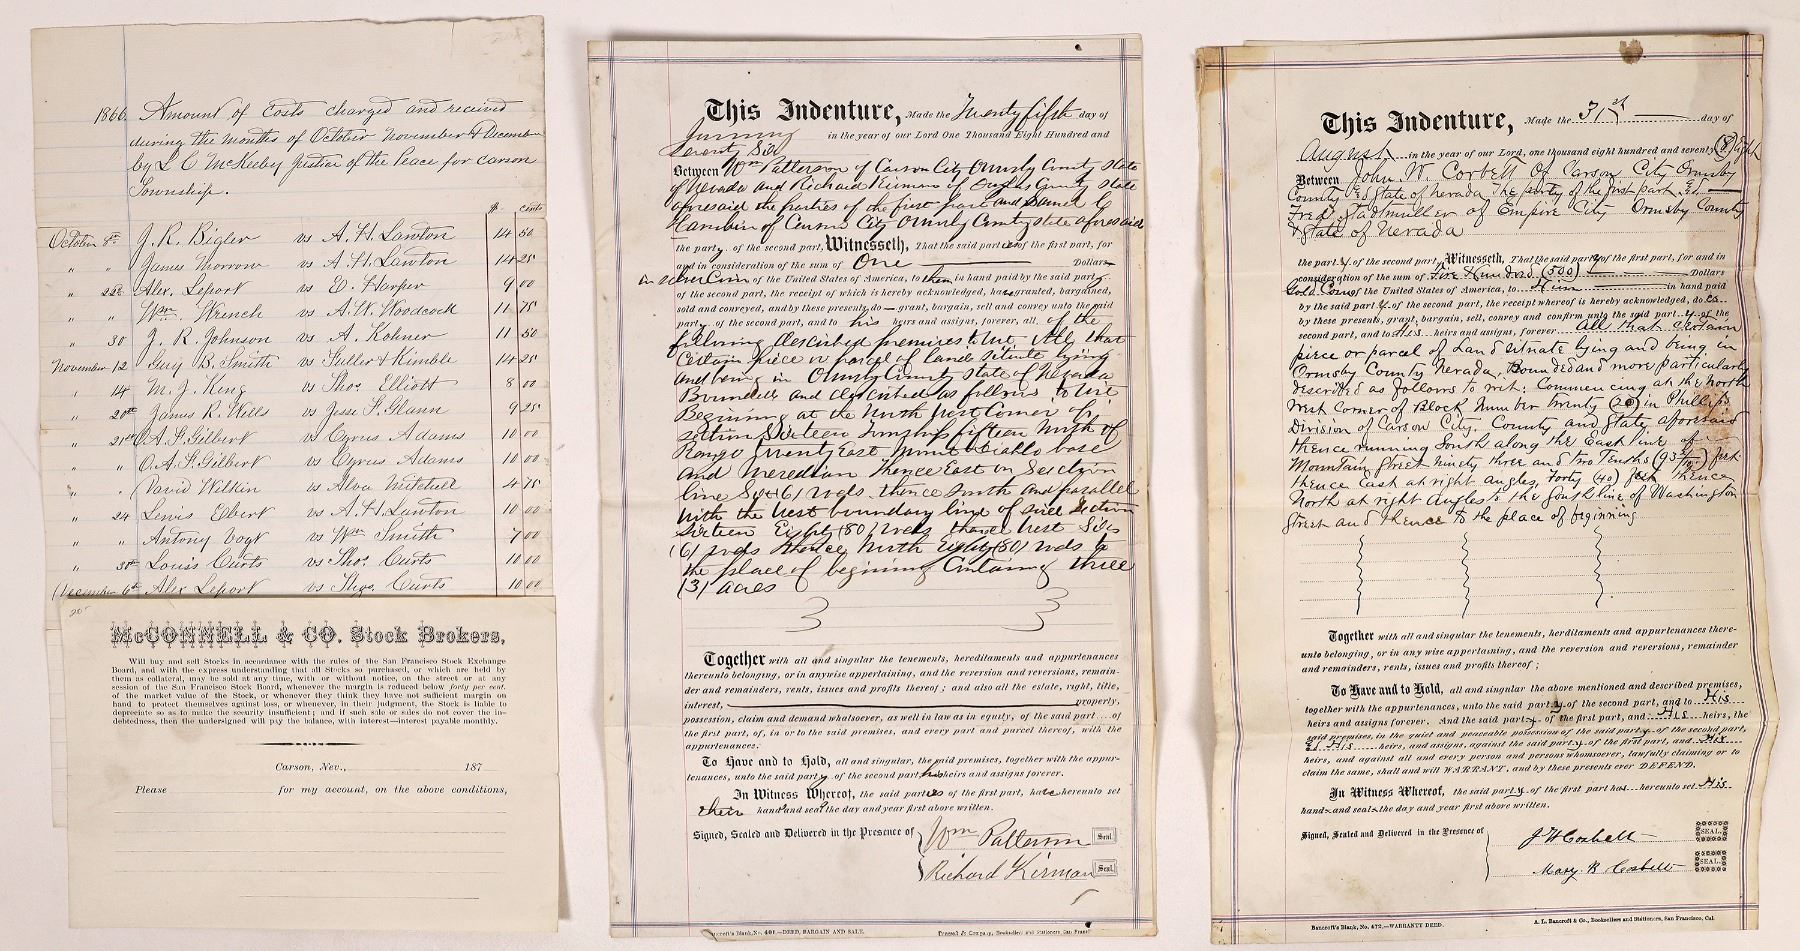 1866 Amount of Costs charged and received
during the months of October November & December
by L C McKeeby Justice of the Peace for Carson
Township.
$ cents
October 8th J. R. Bigler vs A. H. Lawton 14 50
" " James Morrow vs A. H. Lawton 14 25
" 22d Alex. Leport vs D. Harper 9 00
" " Wm Wrench vs A. W. Woodcock 11 75
" 30 J. R. Johnson vs A. Kohner 11 50
November 12 Guy B. Smith vs Fuller & Kimble 14 25
" 14 M. J. King vs Thos Elliott 8 00
" 20th James R. Wills vs Jesse F. Glann 9 25
" 21st O. A. F. Gilbert vs Cyrus Adams 10 00
" " O. A. F. Gilbert vs Cyrus Adams 10 00
" " David Wilkin vs Alva Mitchell 4 75
" 24 Lewis Ebert vs A. H. Lawton 10 00
" " Antony Vogt vs Wm Smith 7 00
" 30th Louis Curts vs Thos Curts 10 00
December 6th Alex Leport vs Thos. Curts 10 00
McCONNELL & CO. Stock Brokers,
Will buy and sell Stocks in accordance with the rules of the San Francisco Stock Exchange
Board, and with the express understanding that all Stocks so purchased, or which are held by
them as collateral, may be sold at any time, with or without notice, on the street or at any
session of the San Francisco Stock Board, whenever the margin is reduced below forty per cent.
of the market value of the Stock, or whenever they think they have not sufficient margin on
hand to protect themselves against loss, or whenever, in their judgment, the Stock is liable to
depreciate so as to make the security insufficient; and if such sale or sales do not cover the in-
debtedness, then the undersigned will pay the balance, with interest—interest payable monthly.
Carson, Nev., 187
Please for my account, on the above conditions,
This Indenture, Made the Twenty fifth day of
January in the year of our Lord One Thousand Eight Hundred and
Seventy Six
Between Wm Patterson of Carson City Ormsby County State
of Nevada and Richard Kirman of Douglas County State
aforesaid the parties of the first part and Samuel C
Hamblin of Carson City Ormsby County State aforesaid
the party of the second part, Witnesseth, That the said parties of the first part, for
and in consideration of the sum of One Dollars
in silver Coin of the United States of America, to them in hand paid by the said party
of the second part, the receipt of which is hereby acknowledged, has granted, bargained,
sold and conveyed, and by these presents, do grant, bargain, sell and convey unto the said
party of the second part, and to his heirs and assigns, forever, all of the
following described premises to wit. All that
Certain piece or parcel of land situate lying
and being in Ormsby County State of Nevada
Bounded and described as follows to wit
Beginning at the North West Corner of
section Sixteen Township fifteen North of
Range Twenty East Mount Diablo base
and Meredian Thence East on Section
line Six (6) rods thence South and parallel
with the West boundary line of said Section
sixteen Eighty (80) rods thence West Six
(6) rods thence North Eighty (80) rods to
the place of begining Containing three
(3) acres
Together with all and singular the tenements, hereditaments and appurtenances
thereunto belonging, or in anywise appertaining, and the reversion and reversions, remain-
der and remainders, rents, issues and profits thereof; and also all the estate, right, title,
interest, property,
possession, claim and demand whatsoever, as well in law as in equity, of the said part of
the first part, of, in or to the said premises, and every part and parcel thereof, with the
appurtenances.
To Have and to Hold, all and singular, the said premises, together with the appur-
tenances, unto the said party of the second part, his heirs and assigns forever.
In Witness Whereof, the said parties of the first part, have hereunto set
their hand and seal the day and year first above written.
Signed, Sealed and Delivered in the Presence of
Wm Patterson Seal.
Richard Kirman Seal.
Bancroft's Blank, No. 401.—DEED, BARGAIN AND SALE.
This Indenture, Made the 31st day of
August in the year of our Lord, one thousand eight hundred and seventy (8) Eight
Between John W. Corbett Of Carson City Ormsby
County & State of Nevada The party of the first part &
Fred. Stadtmuller of Empire City Ormsby County
& State of Nevada
the party of the second part, Witnesseth, That the said party of the first part, for and in
consideration of the sum of Five Hundred (500) Dollars
Gold Coin of the United States of America, to Him in hand paid
by the said party of the second part, the receipt whereof is hereby acknowledged, does
by these presents, grant, bargain, sell, convey and confirm unto the said party of the
second part, and to His heirs and assigns, forever All that certain
piece or parcel of Land situate lying and being in
Ormsby County Nevada, Bounded and more particularly
described as follows to wit: Commencing at the North
West Corner of Block Number twenty (20) in Phillips
Division of Carson City. County and State aforesaid
thence running South along the East line of
Mountain Street Ninety three and two Tenths (93 2/10) feet
thence East at right angles, Forty (40) feet Thence
North at right Angles to the South line of Washington
Street and thence to the place of begining
Together with all and singular the tenements, herditaments and appurtenances there-
unto belonging, or in any wise appertaining, and the reversion and reversions, remainder
and remainders, rents, issues and profits thereof;
To Have and to Hold, all and singular the above mentioned and described premises,
together with the appurtenances, unto the said party of the second part, and to His
heirs and assigns forever. And the said party of the first part, and His heirs, the
said premises, in the quiet and peaceable possession of the said party of the second part,
& His heirs, and assigns, against the said party of the first part, and His
heirs, and against all and every person and persons whomsoever, lawfully claiming or to
claim the same, shall and will WARRANT, and by these presents ever DEFEND.
In Witness Whereof, the said party of the first part has hereunto set His
hand and seal the day and year first above written.
Signed, Sealed and Delivered in the Presence of
J W Corbett SEAL.
Mary B Corbett SEAL.
Bancroft's Blank, No. 472.—WARRANTY DEED.
A. L. Bancroft & Co., Booksellers and Stationers, San Francisco, Cal.